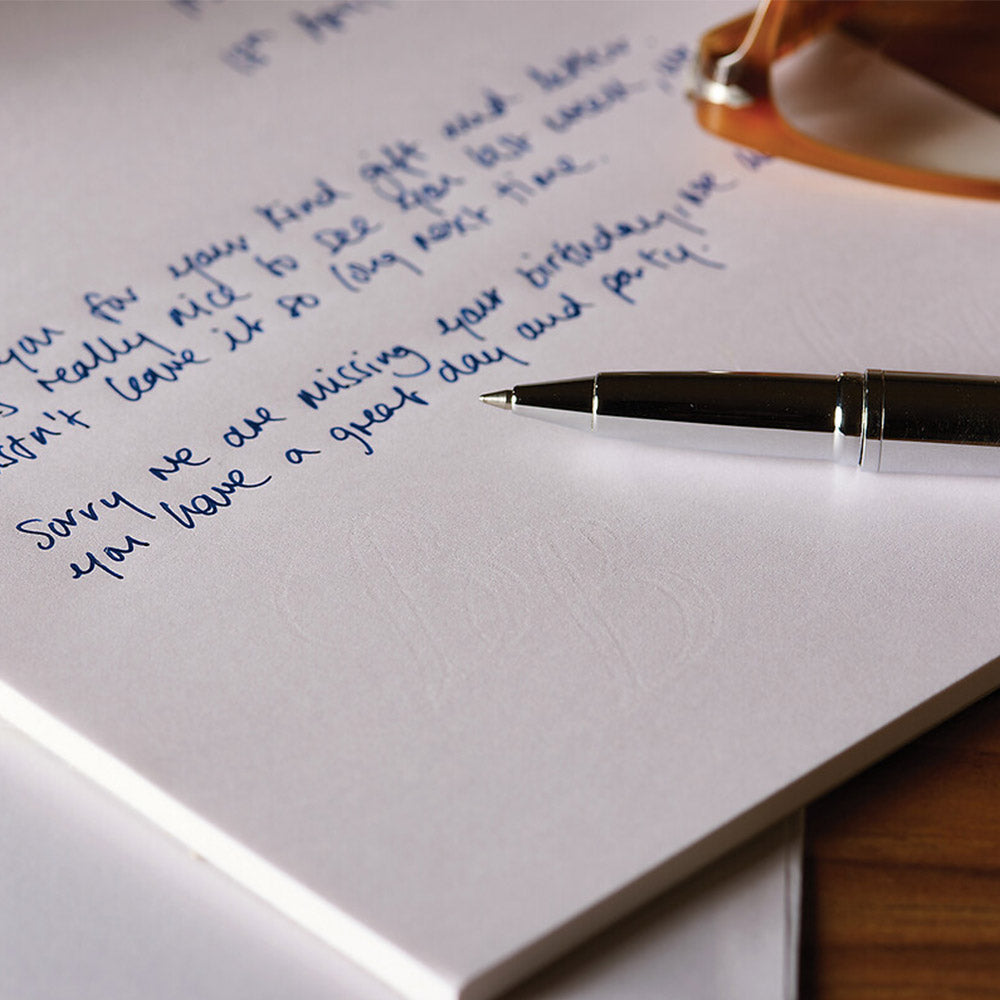 18th April
you for your kind gift and letter
really nice to see you last week, we
mustn't leave it so long next time.
Sorry we are missing your birthday, we
you have a great day and party.